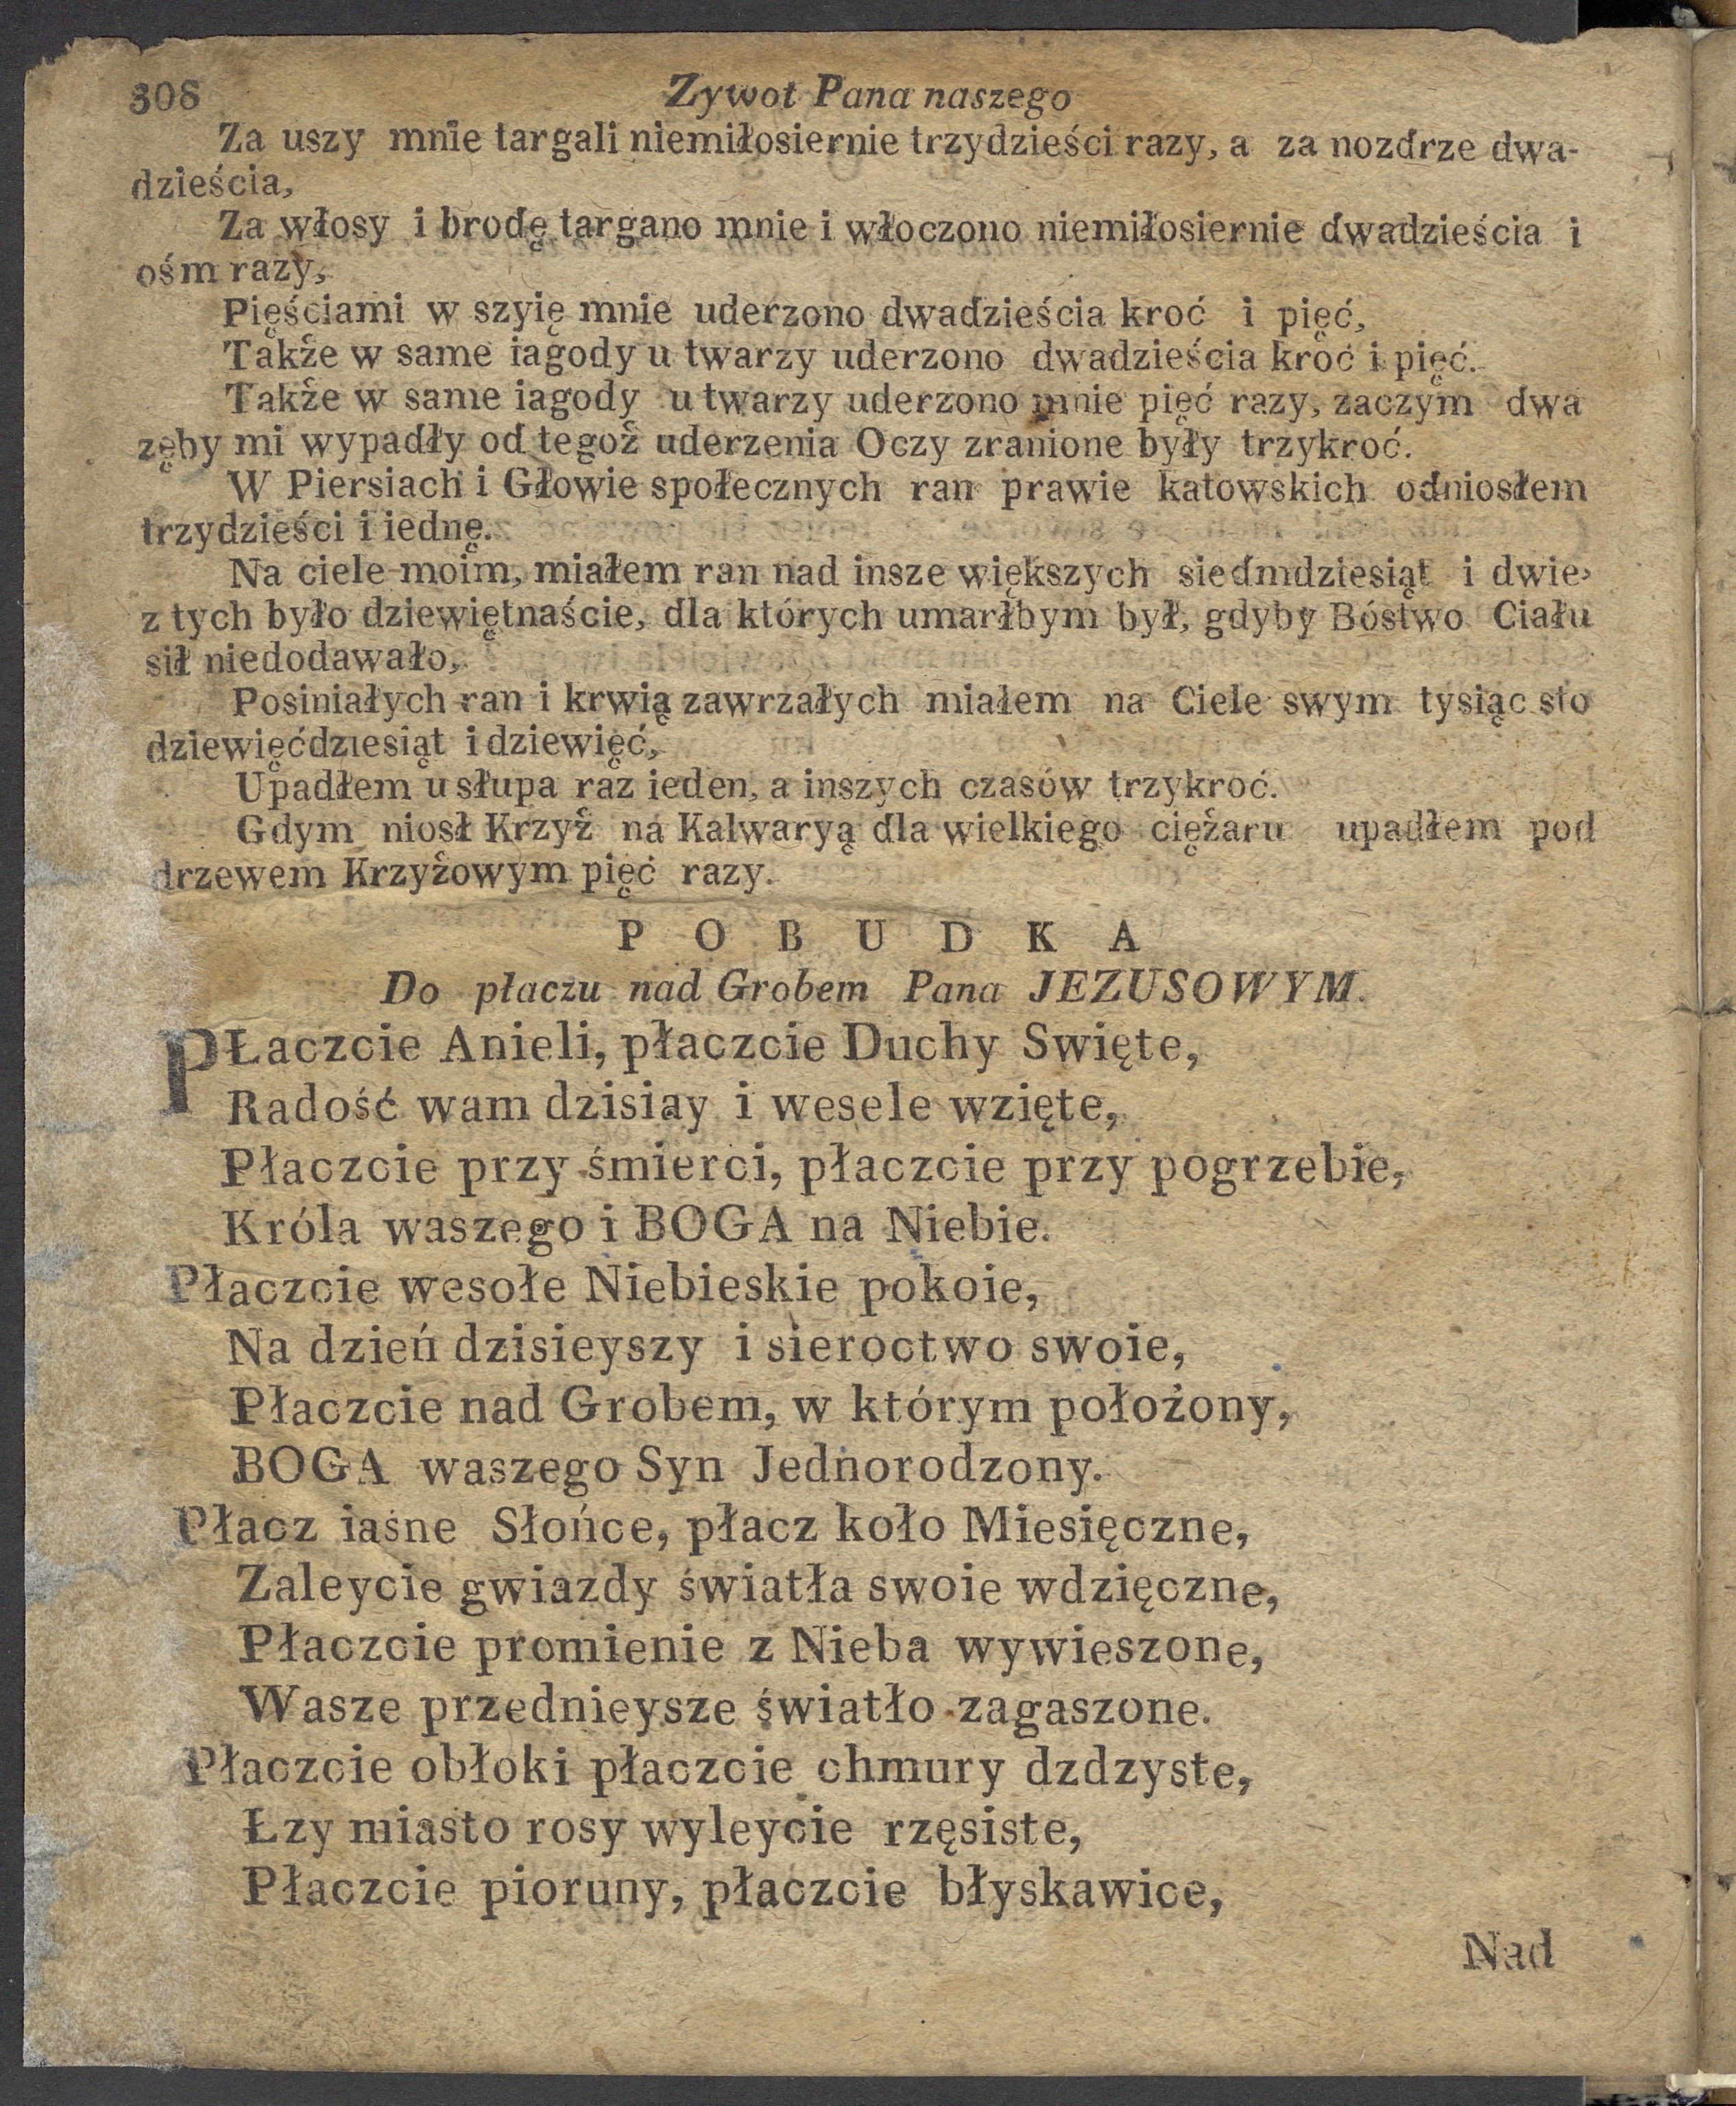 308 Zywot Pana naszego
Za uszy mnie targali niemiłosiernie trzydzieści razy, a za nozdrze dwa-
dzieścia,
Za włosy i brodę targano mnie i włoczono niemiłosiernie dwadzieścia i
ośm razy,
Pięściami w szyię mnie uderzono dwadzieścia kroć i pięć,
Także w same iagody u twarzy uderzono dwadzieścia kroć i pięć.
Także w same iagody u twarzy uderzono mnie pięć razy, zaczym dwa
zęby mi wypadły od tegoż uderzenia Oczy zranione były trzykroć.
W Piersiach i Głowie społecznych ran prawie katowskich odniosłem
trzydzieści i iednę.
Na ciele moim, miałem ran nad insze większych siedmdziesiąt i dwie,
z tych było dziewiętnaście, dla których umarłbym był, gdyby Bóstwo Ciału
sił niedodawało,
Posiniałych ran i krwią zawrzałych miałem na Ciele swym tysiąc sto
dziewięćdziesiąt i dziewięć,
Upadłem u słupa raz ieden, a inszych czasów trzykroć.
Gdym niosł Krzyż na Kalwaryą dla wielkiego ciężaru upadłem pod
drzewem Krzyżowym pięć razy.
P O B U D K A
Do płaczu nad Grobem Pana JEZUSOWYM.
PŁaczcie Anieli, płaczcie Duchy Swięte,
Radość wam dzisiay i wesele wzięte,
Płaczcie przy śmierci, płaczcie przy pogrzebie,
Króla waszego i BOGA na Niebie.
Płaczcie wesołe Niebieskie pokoie,
Na dzień dzisieyszy i sieroctwo swoie,
Płaczcie nad Grobem, w którym położony,
BOGA waszego Syn Jednorodzony.
Płacz iaśne Słońce, płacz koło Miesięczne,
Zaleycie gwiazdy światła swoie wdzięczne,
Płaczcie promienie z Nieba wywieszone,
Wasze przednieysze światło zagaszone.
Płaczcie obłoki płaczcie chmury dzdzyste,
Łzy miasto rosy wyleycie rzęsiste,
Płaczcie pioruny, płaczcie błyskawice,
Nad